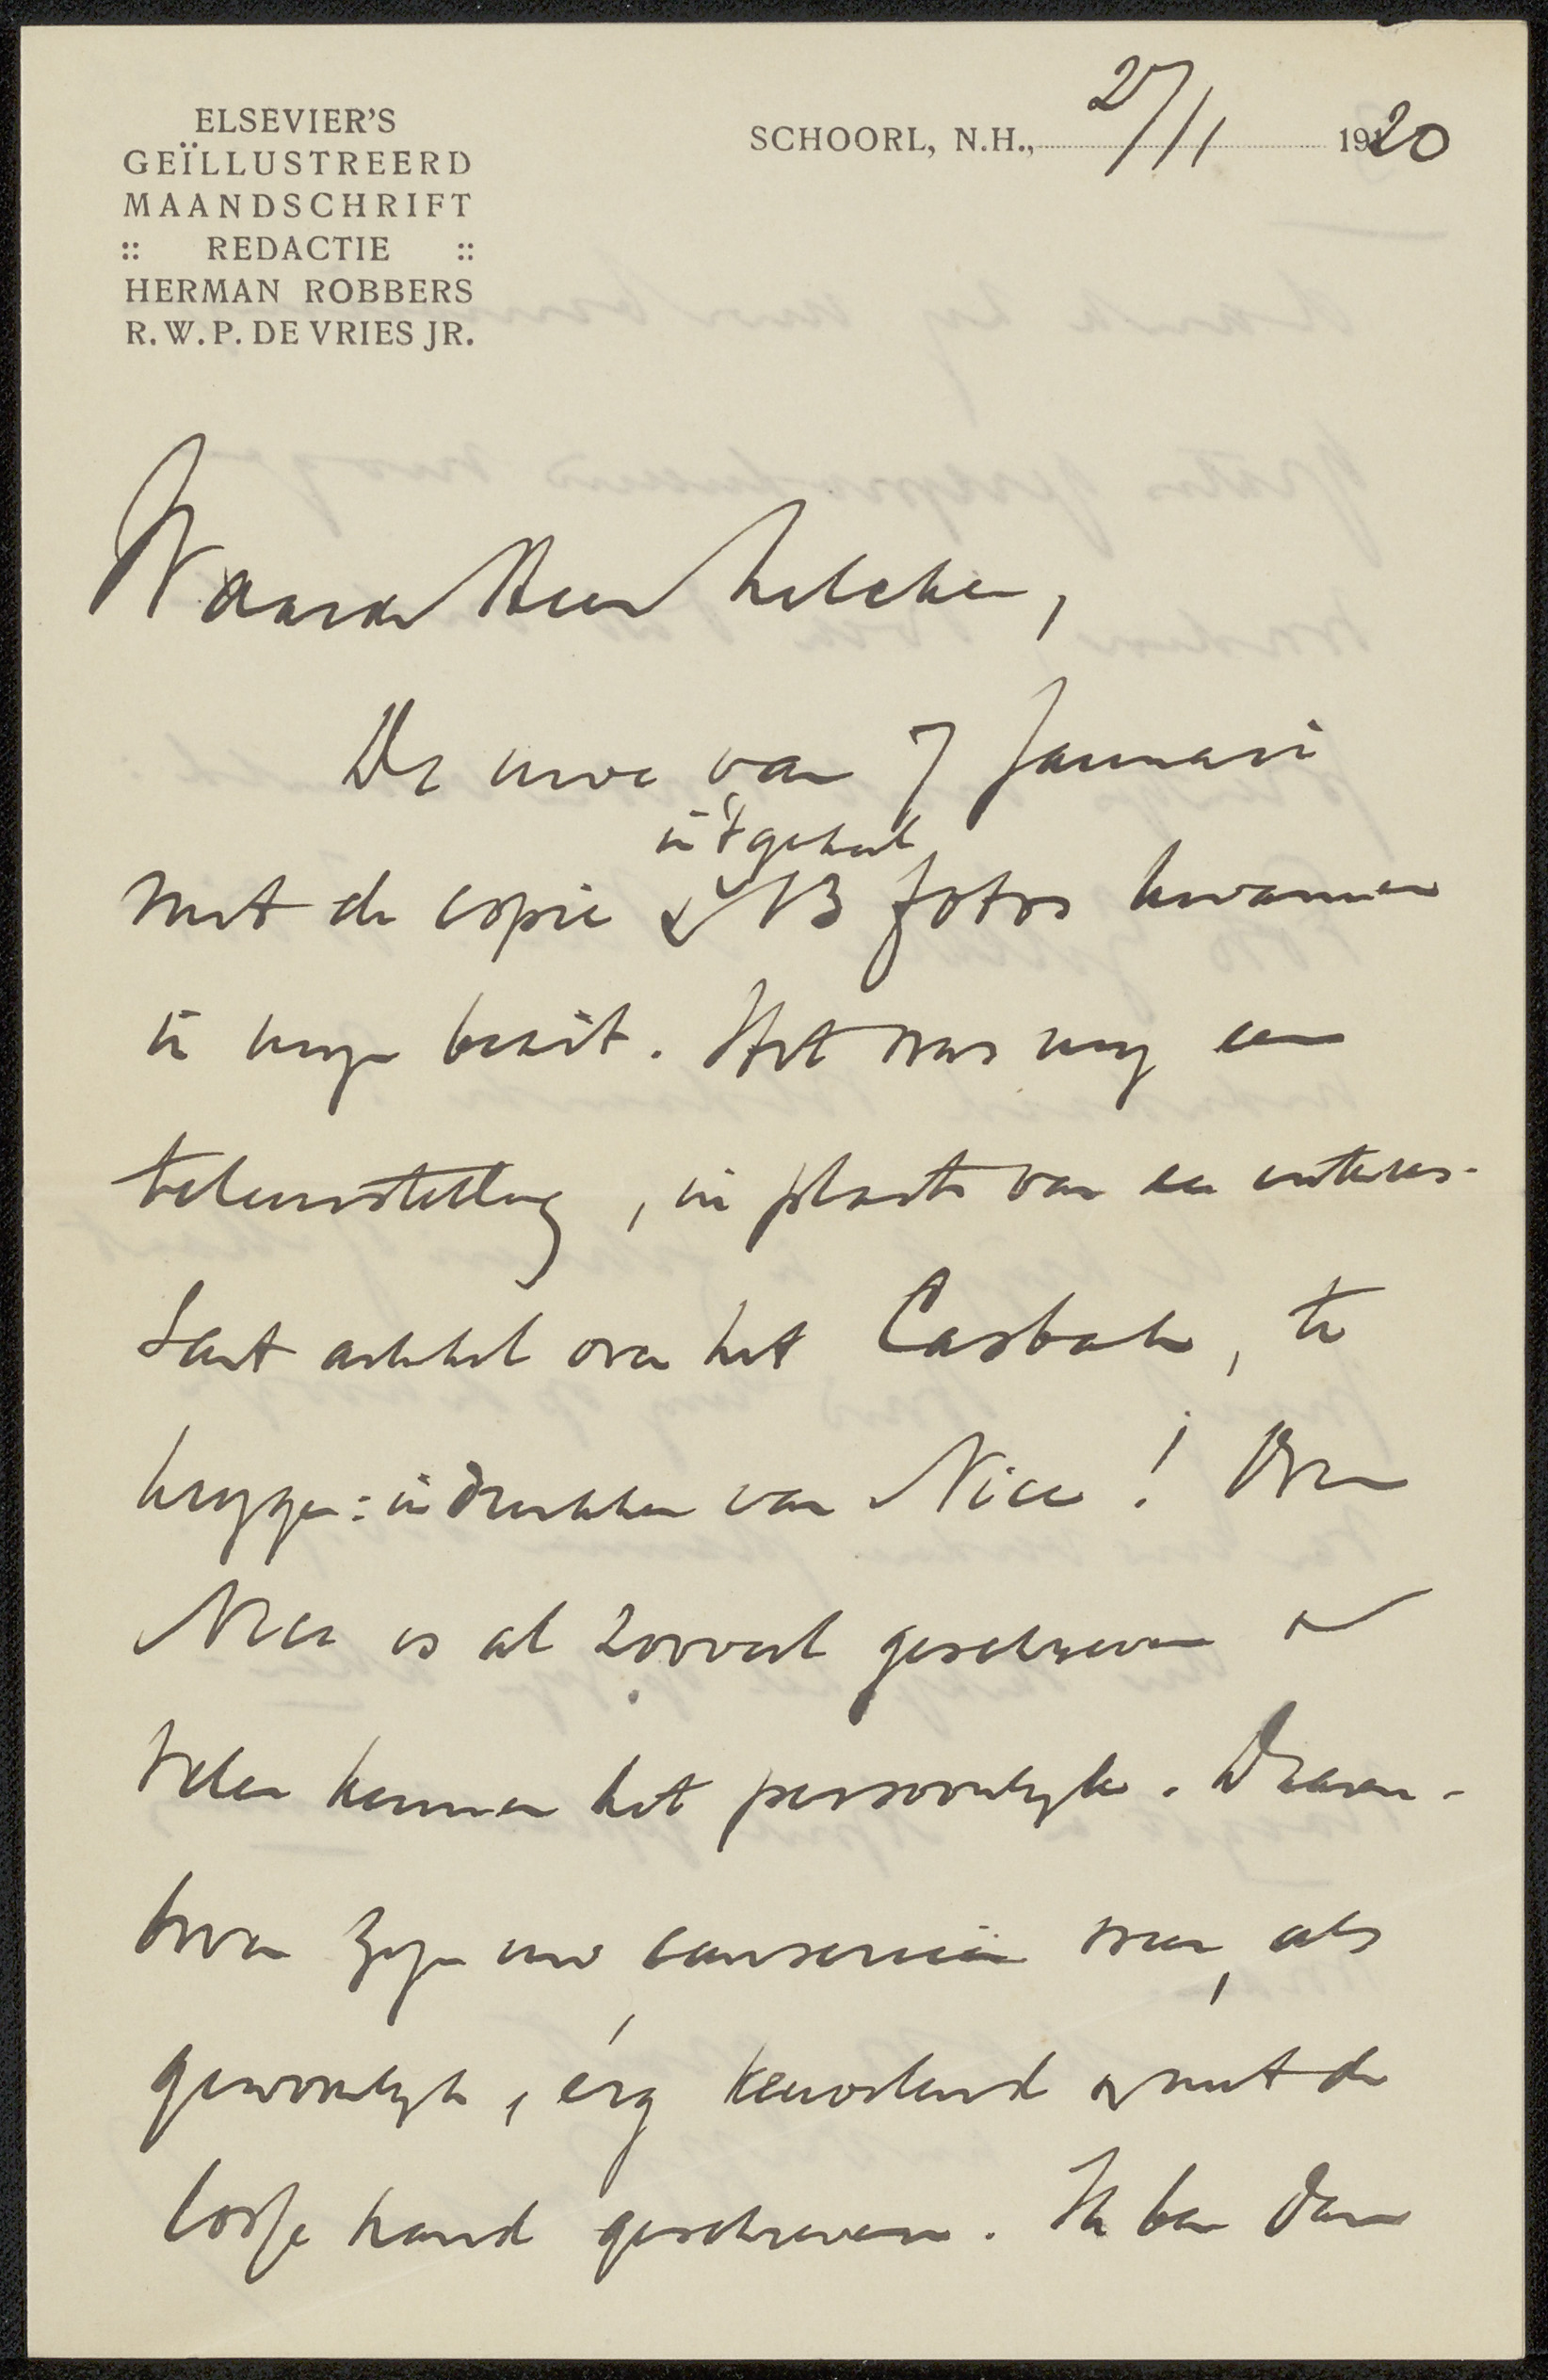 ELSEVIER'S
GEÏLLUSTREERD
MAANDSCHRIFT
:: REDACTIE ::
HERMAN ROBBERS
R. W. P. DE VRIES JR.
SCHOORL, N.H., 27/1 1920
Waarde Heer
De uwe van 7 Januari
uitgebr
met de copie & 13 foto's kwamen
in mijn bezit. Het was mij een
teleurstelling, in plaats van een interes-
sant artikel over het Casbah, te
krijgen: indrukken van Nice! Over
Nice is al zooveel geschreven en
velen kennen het persoonlijk. Daaren-
boven zijn uw causerieën weer, als
gewoonlijk, érg keuvelend & met de
losse hand geschreven. Ik ben dan